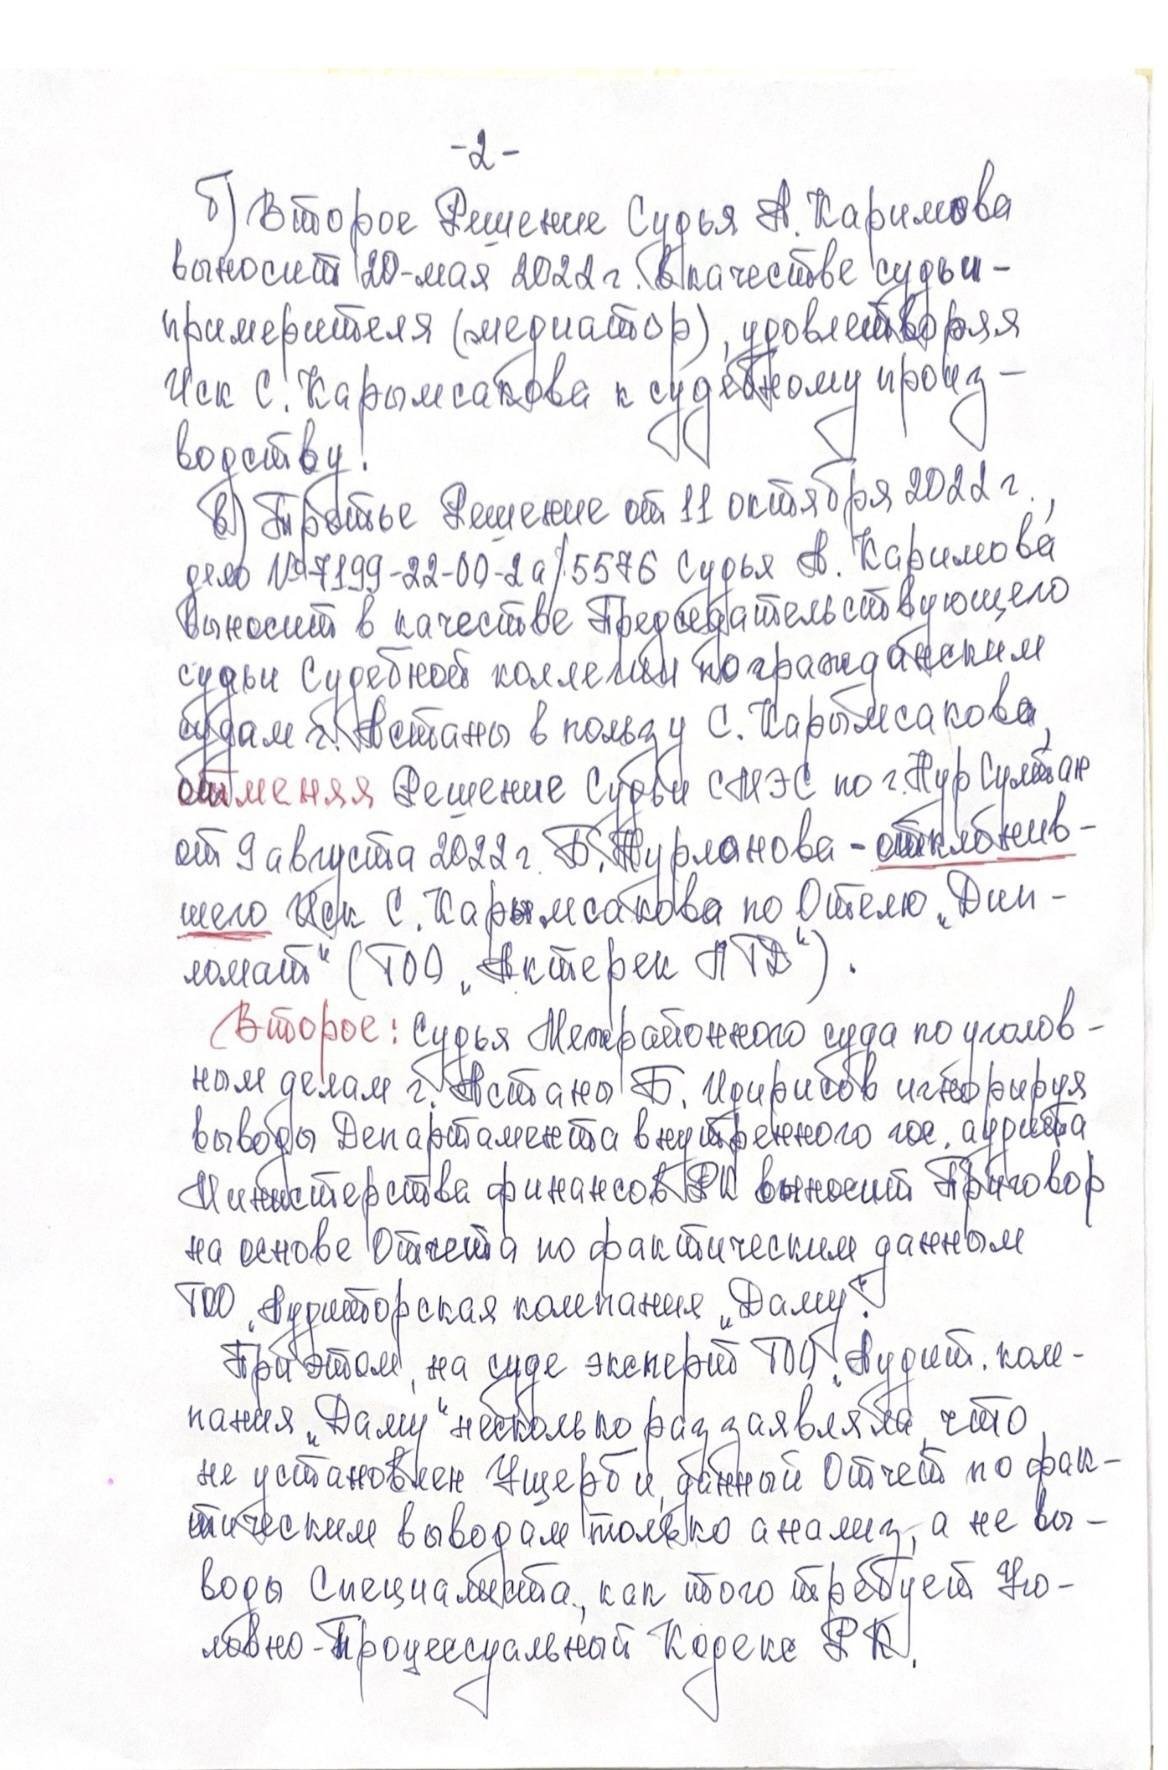 -2-
б) Второе Решение Судья А. Каримова
выносит 20-мая 2022 г. в качестве судьи-
примерителя (медиатор), удовлетворяя
Иск С. Карымсакова к судебному произ-
водству!
в) Третье Решение от 11 октября 2022 г.,
дело №7199-22-00-2а/5576 Судья А. Каримова
выносит в качестве Председательствующего
судьи Судебной коллегии по гражданским
судам г. Астаны в пользу С. Карымсакова,
отменяя Решение Судьи СМЭС по г. Нур Султан
от 9 августа 2022 г. Б. Нурланова - отклонив-
шего Иск С. Карымсакова по Отелю „Дип-
ломат“ (ТОО „Актерек ЛТД“).
Второе: Судья Межрайонного суда по уголов-
ным делам г. Астаны Б. Идирисов игнорируя
выводы Департамента внутреннего гос. аудита
Министерства финансов РК выносит Приговор
на основе Отчета по фактическим данным
ТОО „Аудиторская компания „Даму“.
При этом, на суде эксперт ТОО „Аудит. ком-
пания „Даму“ несколько раз заявляла, что
не установлен Ущерб и, данный Отчет по фак-
тическим выводам только анализ, а не вы-
воды Специалиста, как того требует Уго-
ловно-Процессуальный Кодекс РК.